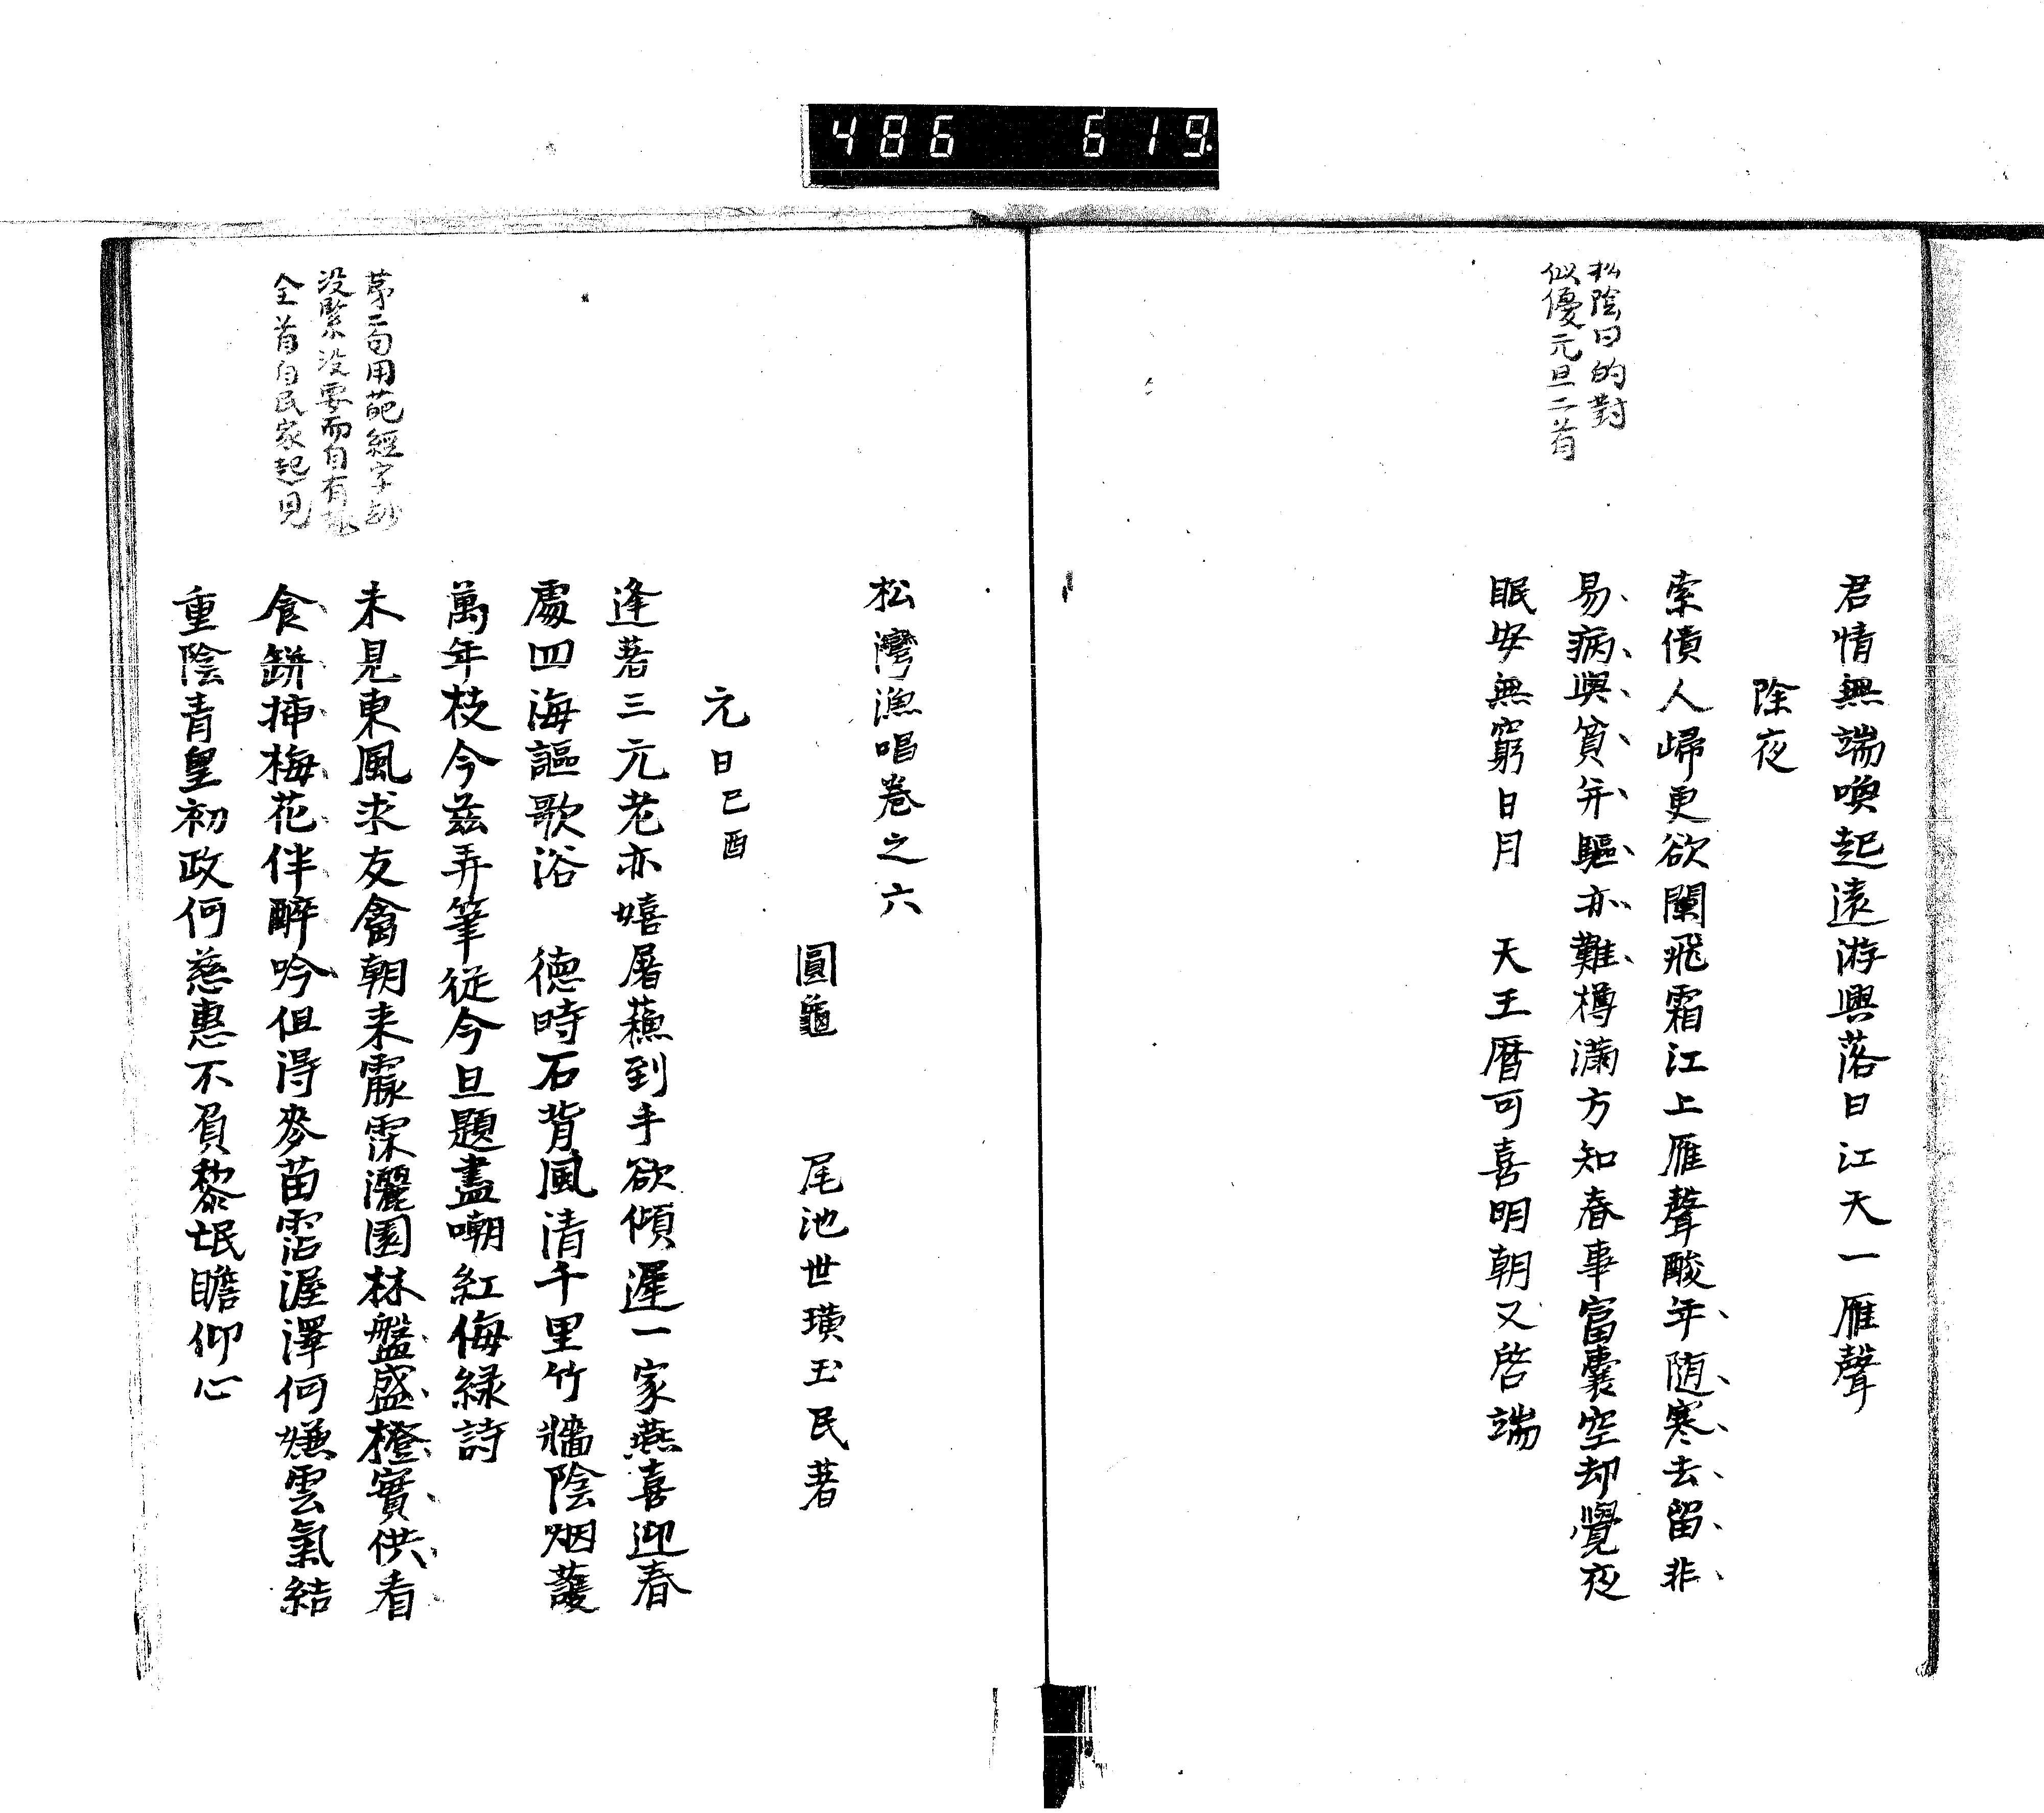 486 619
松陰曰的對
似優元旦二首
君情無端喚起遠游興落日江天一雁聲
除夜
索債人歸更欲闌飛霜江上雁聲酸年随寒去留非
易病與貧并驅亦難樽滿方知春事富囊空却覺夜
眠安無窮日月 天王曆可喜明朝又啓端
松灣漁唱卷之六
圓龜 尾池世璜玉民著
元日己酉
逢着三元老亦嬉屠蘓到手欲傾遲一家燕喜迎春
處四海謳歌浴 德時石背風清千里竹牆陰烟護
萬年枝今茲弄筆從今旦題盡嘲紅侮緑詩
第二句用葩經字妙
没緊没要而自有
全首自民家起見
未見東風求友禽朝来霡霂灑園林盤盛橙實供看
食餅挿梅花伴醉吟但得麥苗霑渥澤何嫌雲氣結
重陰青皇初政何慈惠不負黎氓瞻仰心